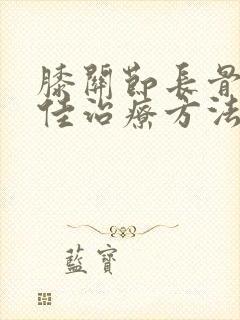 膝關節長骨
佳治療方法
藍寶